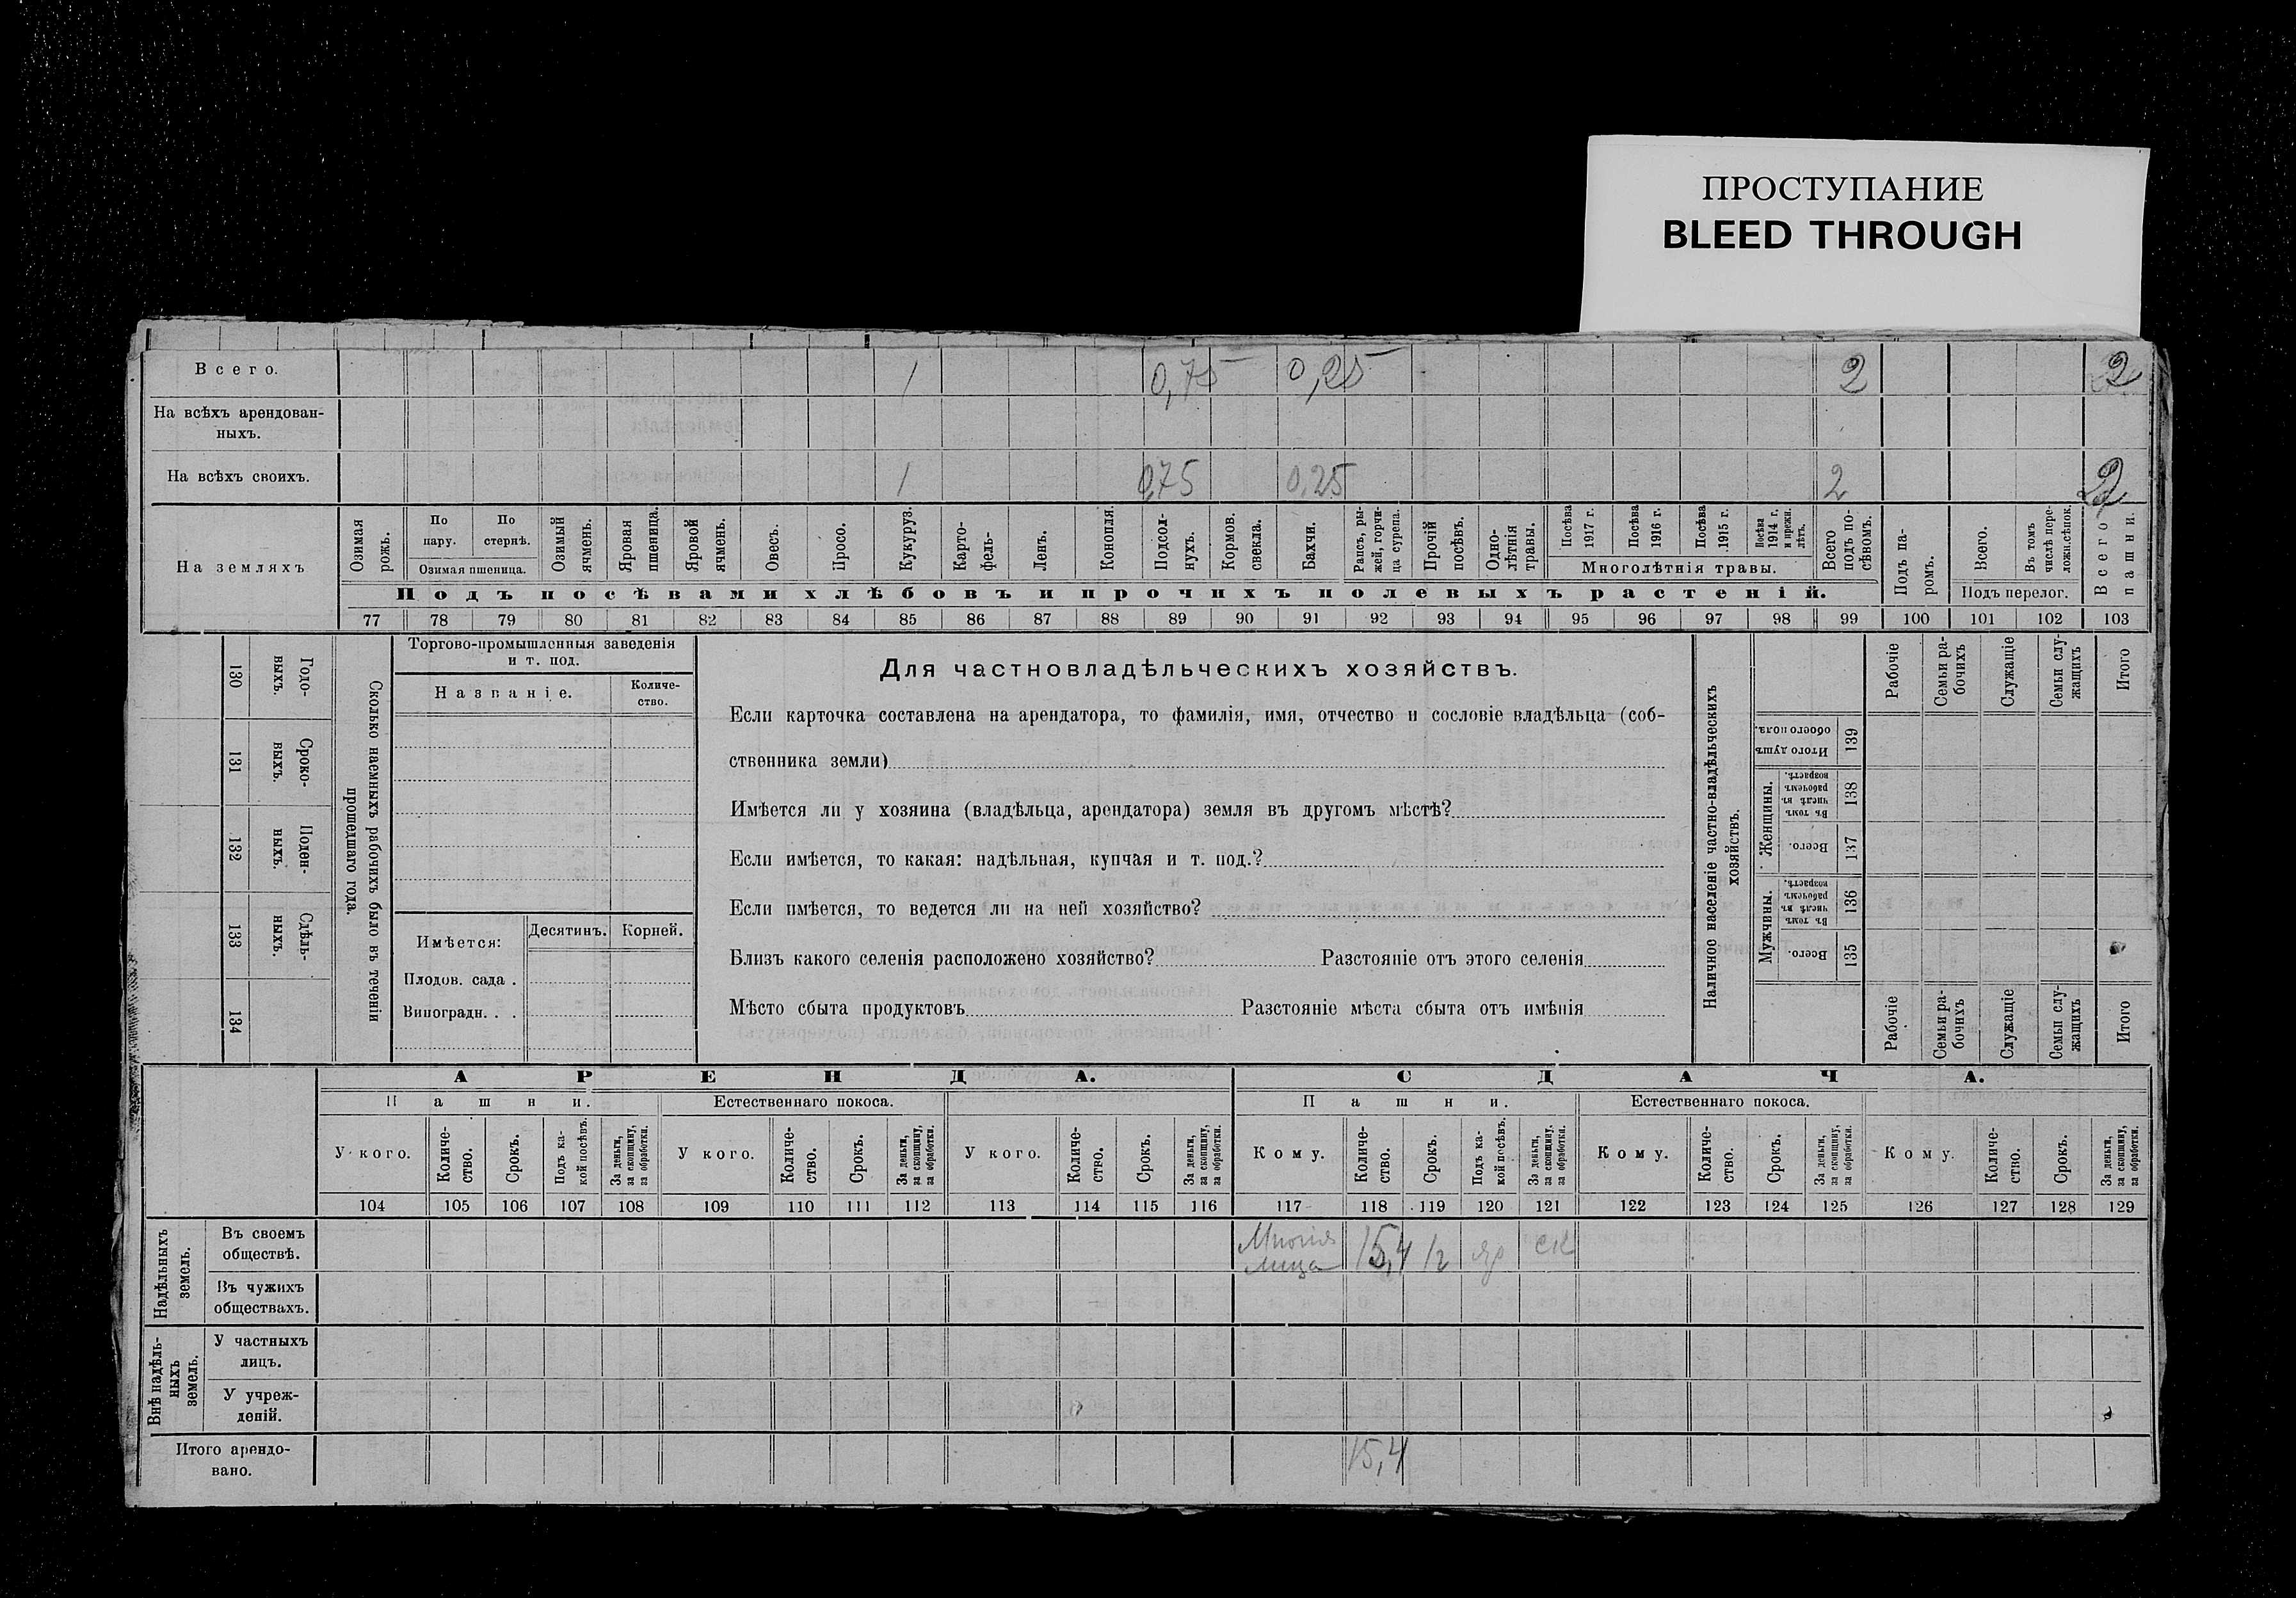 ПРОСТУПАНИЕ
BLEED THROUGH
Всего. 1 0,75 0,25 2 2
На всѣхъ арендован-
ныхъ.
На всѣхъ своихъ. 1 0,75 0,25 2 2
На земляхъ
Озимая рожь.
По пару.
По стернѣ.
Озимая пшеница.
Озимый ячмень.
Яровая пшеница.
Яровой ячмень.
Овесъ.
Просо.
Кукуруз.
Карто-
фель-
Ленъ.
Конопля.
Подсол-
нухъ.
Кормов. свекла.
Бахчи.
Рапсъ, ры-
жей, горчи-
ца сурепа.
Прочій посѣвъ.
Одно-
лѣтнія
травы.
Посѣва 1917 г.
Посѣва 1916 г.
Посѣва 1915 г.
Посѣва 1914 г. и прежн. лѣтъ.
Многолѣтнія травы.
Всего подъ по-
сѣвомъ.
Подъ па-
ромъ.
Всего.
Въ томъ числѣ пере-
ложн. сѣнок.
Подъ перелог.
Всего пашни.
Подъ посѣвами хлѣбовъ и прочихъ полевыхъ растеній.
77 78 79 80 81 82 83 84 85 86 87 88 89 90 91 92 93 94 95 96 97 98 99 100 101 102 103
130 Годо-
ныхъ.
131 Сроко-
ныхъ.
132 Поден-
ныхъ.
133 Сдѣль-
ныхъ.
134
Сколько наемныхъ рабочихъ было въ теченіи
прошедшаго года.
Торгово-промышленныя заведенія
и т. под.
Названіе.
Количе-
ство.
Имѣется:
Десятинъ.
Корней.
Плодов. сада .
Виноградн. . .
Для частновладѣльческихъ хозяйствъ.
Если карточка составлена на арендатора, то фамилія, имя, отчество и сословіе владѣльца (соб-
ственника земли)
Имѣется ли у хозяина (владѣльца, арендатора) земля въ другомъ мѣстѣ?
Если имѣется, то какая: надѣльная, купчая и т. под.?
Если имѣется, то ведется ли на ней хозяйство?
Близъ какого селенія расположено хозяйство? Разстояніе отъ этого селенія
Мѣсто сбыта продуктовъ Разстояніе мѣста сбыта отъ имѣнія
Наличное населеніе частно-владѣльческихъ
хозяйствъ.
Рабочіе
Семьи ра-
бочихъ
Служащіе
Семьи слу-
жащихъ
Итого
Итого душъ обоего пола. 139
Женщины.
Въ томъ числѣ въ рабочемъ возрастѣ. 138
Всего. 137
Мужчины.
Въ томъ числѣ въ рабочемъ возрастѣ. 136
Всего. 135
Рабочіе
Семьи ра-
бочихъ
Служащіе
Семьи слу-
жащихъ
Итого
АРЕНДА. СДАЧА.
Пашни. Естественнаго покоса. Пашни. Естественнаго покоса.
У кого.
Количе-
ство.
Срокъ.
Подъ ка-
кой посѣвъ.
За деньги,
за скопщину,
за обработки.
У кого.
Количе-
ство.
Срокъ.
За деньги,
за скопщину,
за обработки.
У кого.
Количе-
ство.
Срокъ.
За деньги,
за скопщину,
за обработки.
Кому.
Количе-
ство.
Срокъ.
Подъ ка-
кой посѣвъ.
За деньги,
за скопщину.
за обработки.
Кому.
Количе-
ство.
Срокъ.
За деньги,
за скопщину,
за обработки.
Кому.
Количе-
ство.
Срокъ.
За деньги,
за скопщину,
за обработки.
104 105 106 107 108 109 110 111 112 113 114 115 116 117 118 119 120 121 122 123 124 125 126 127 128 129
Надѣльныхъ
земель.
Въ своемъ
обществѣ.
лица 15,4 ск
Въ чужихъ
обществахъ.
Внѣ надѣль-
ныхъ
земель.
У частныхъ
лицъ.
У учреж-
деній.
Итого арендо-
вано.
15,4